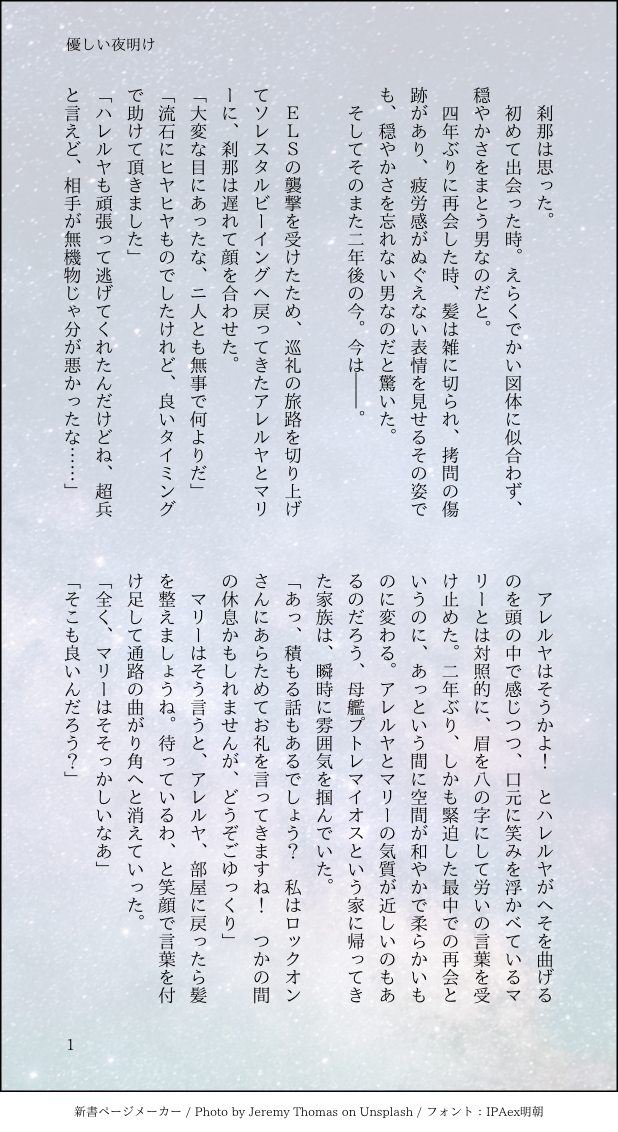 優しい夜明け
　刹那は思った。
　初めて出会った時。えらくでかい図体に似合わず、
穏やかさをまとう男なのだと。
　四年ぶりに再会した時、髪は雑に切られ、拷問の傷
跡があり、疲労感がぬぐえない表情を見せるその姿で
も、穏やかさを忘れない男なのだと驚いた。
　そしてそのまた二年後の今。今は――。
　ＥＬＳの襲撃を受けたため、巡礼の旅路を切り上げ
てソレスタルビーイングへ戻ってきたアレルヤとマリ
ーに、刹那は遅れて顔を合わせた。
「大変な目にあったな、二人とも無事で何よりだ」
「流石にヒヤヒヤものでしたけれど、良いタイミング
で助けて頂きました」
「ハレルヤも頑張って逃げてくれたんだけどね、超兵
と言えど、相手が無機物じゃ分が悪かったな……」
　アレルヤはそうかよ！　とハレルヤがへそを曲げる
のを頭の中で感じつつ、口元に笑みを浮かべているマ
リーとは対照的に、眉を八の字にして労いの言葉を受
け止めた。二年ぶり、しかも緊迫した最中での再会と
いうのに、あっという間に空間が和やかで柔らかいも
のに変わる。アレルヤとマリーの気質が近しいのもあ
るのだろう、母艦プトレマイオスという家に帰ってき
た家族は、瞬時に雰囲気を掴んでいた。
「あっ、積もる話もあるでしょう？　私はロックオン
さんにあらためてお礼を言ってきますね！　つかの間
の休息かもしれませんが、どうぞごゆっくり」
　マリーはそう言うと、アレルヤ、部屋に戻ったら髪
を整えましょうね。待っているわ、と笑顔で言葉を付
け足して通路の曲がり角へと消えていった。
「全く、マリーはそそっかしいなあ」
「そこも良いんだろう？」
1
新書ページメーカー / Photo by Jeremy Thomas on Unsplash / フォント：IPAex明朝